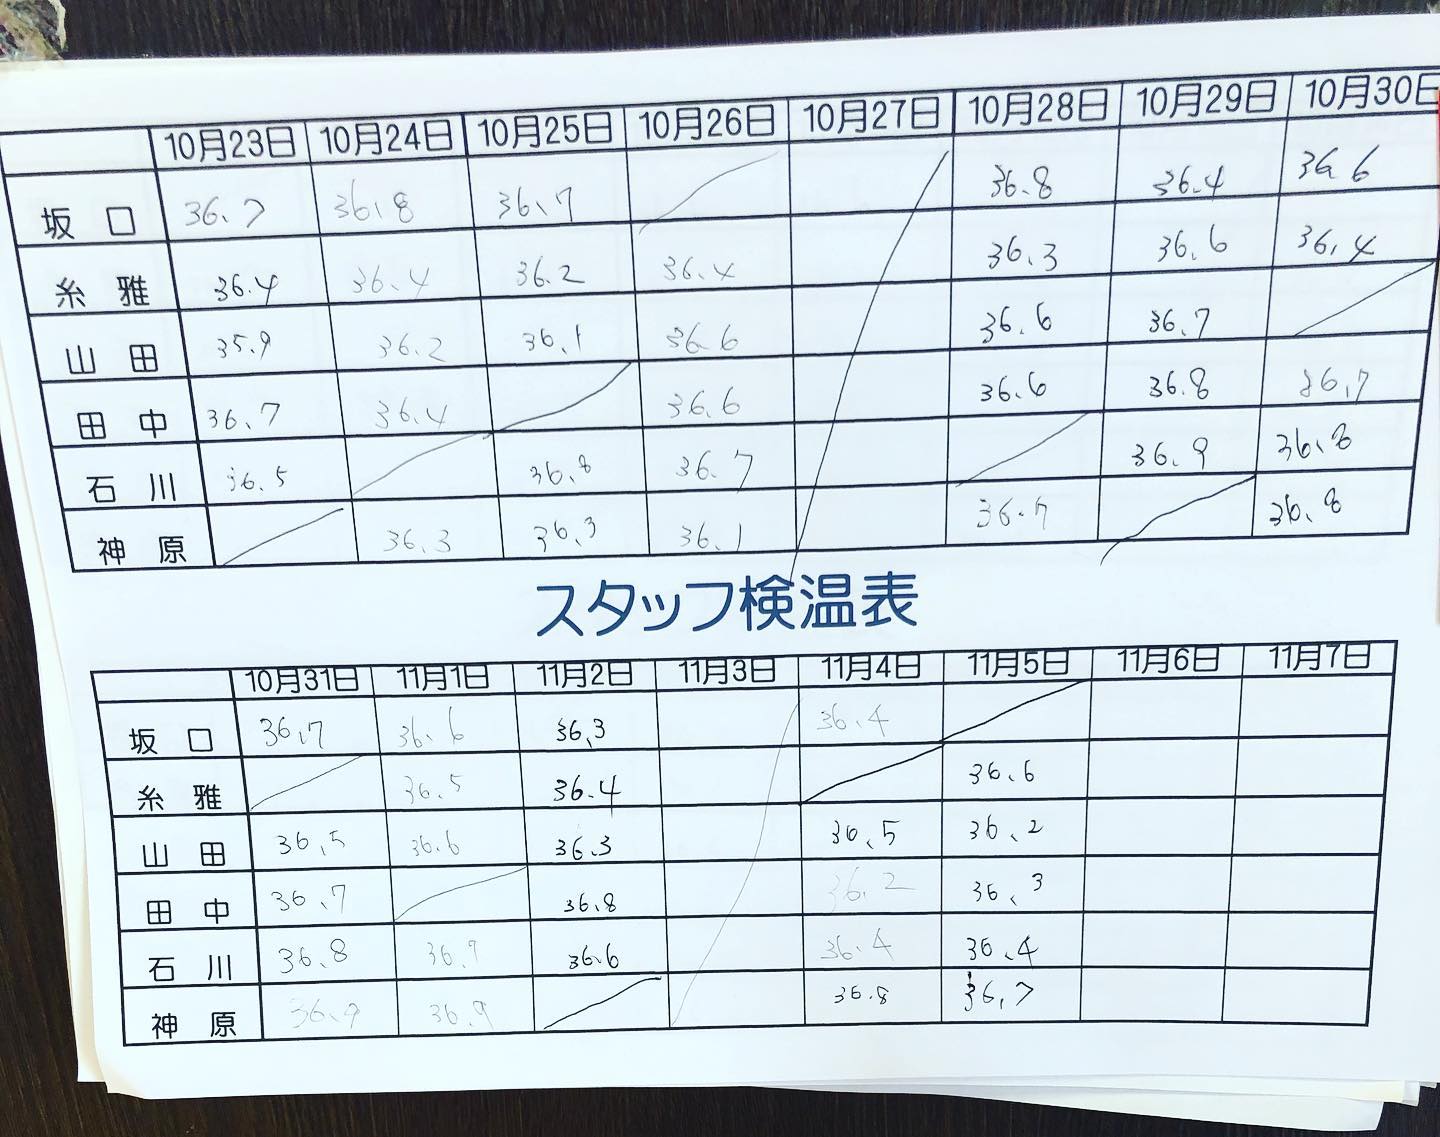 10月23日 10月24日 10月25日 10月26日 10月27日 10月28日 10月29日 10月30日
坂口 36.7 36.8 36.7 36.8 36.4 36.6
糸雅 36.4 36.4 36.2 36.4 36.3 36.6 36.4
山田 35.9 36.2 36.1 36.6 36.6 36.7
田中 36.7 36.4 36.6 36.6 36.8 36.7
石川 36.5 36.8 36.7 36.9 36.8
神原 36.3 36.3 36.1 36.7 36.8
スタッフ検温表
10月31日 11月1日 11月2日 11月3日 11月4日 11月5日 11月6日 11月7日
坂口 36.7 36.6 36.3 36.4
糸雅 36.5 36.4 36.6
山田 36.5 36.6 36.3 36.5 36.2
田中 36.7 36.8 36.2 36.3
石川 36.8 36.6 36.4 36.4
神原 36.9 36.9 36.8 36.7